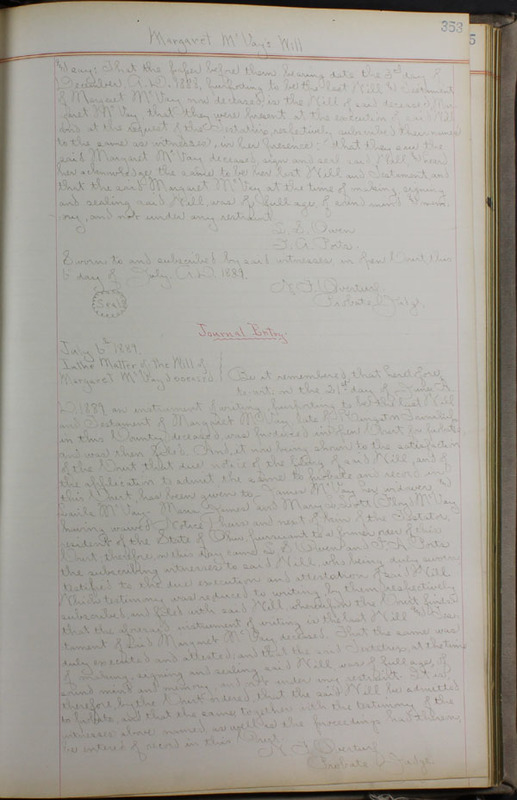 353
Margaret McVay's Will
& say: That the paper before them bearing date the 3rd day of
December, A.D. 1883, purporting to be the last Will & Testament
of Margaret McVay now deceased, is the Will of said deceased, Mar-
garet McVay that they were present at the execution of said Will
and at the request of the testatrix, respectively subscribed their names
to the same as witnesses, in her presence: That they saw the
said Margaret McVay deceased, sign and seal said Will, & heard
her acknowledge the same to be her last Will and Testament, and
that the said Margaret McVay at the time of making, signing
and sealing said Will, was of full age, of sound mind & mem-
ory, and not under any restraint.
S. S. Owen
F. A. Poits
Sworn to and subscribed by said witnesses, in open Court, this
6 day of July A.D. 1889.
Probate Judge.
Seal
Journal Entry.
July 6th 1889.
In the Matter of the Will of
Margaret McVay Deceased
Be it remembered, that heretofore
to wit: on the day of A.
D. 1889 an instrument of writing, purporting to be the last Will
and Testament of Margaret McVay late of Township
in this County, deceased was produced in open Court for probate,
and was then filed. And, it now being shown to the satisfaction
of the Court that due notice of the filing of said Will, and of
the application to admit the same to probate and record in
this Court, has been given to James McVay
McVay, and Mary McVay
having waived Notice, heirs and next of kin of the Testator,
resident of the State of Ohio, pursuant to a former order of this
Court therefore, on this day came S. S. Owen and F. A. Poits
the subscribing witnesses to said Will, who being duly sworn
testified to the due execution and attestation of said Will
Which testimony was reduced to writing by them respectively
subscribed, and filed with said Will, whereupon the Court finds
that the aforesaid instrument of writing is the last Will and Tes-
tament of said Margaret McVay deceased. That the same was
duly executed and attested, and that the said Testatrix, at the time
of making, signing and sealing said Will was of full age, of
sound mind and memory, and not under any restraint. It is
therefore, by the Court ordered that the said Will be admitted
to probate, and that the same, together with the testimony of the
witnesses above named, as well as the proceedings had thereon,
be entered of record in this Court.
Probate Judge